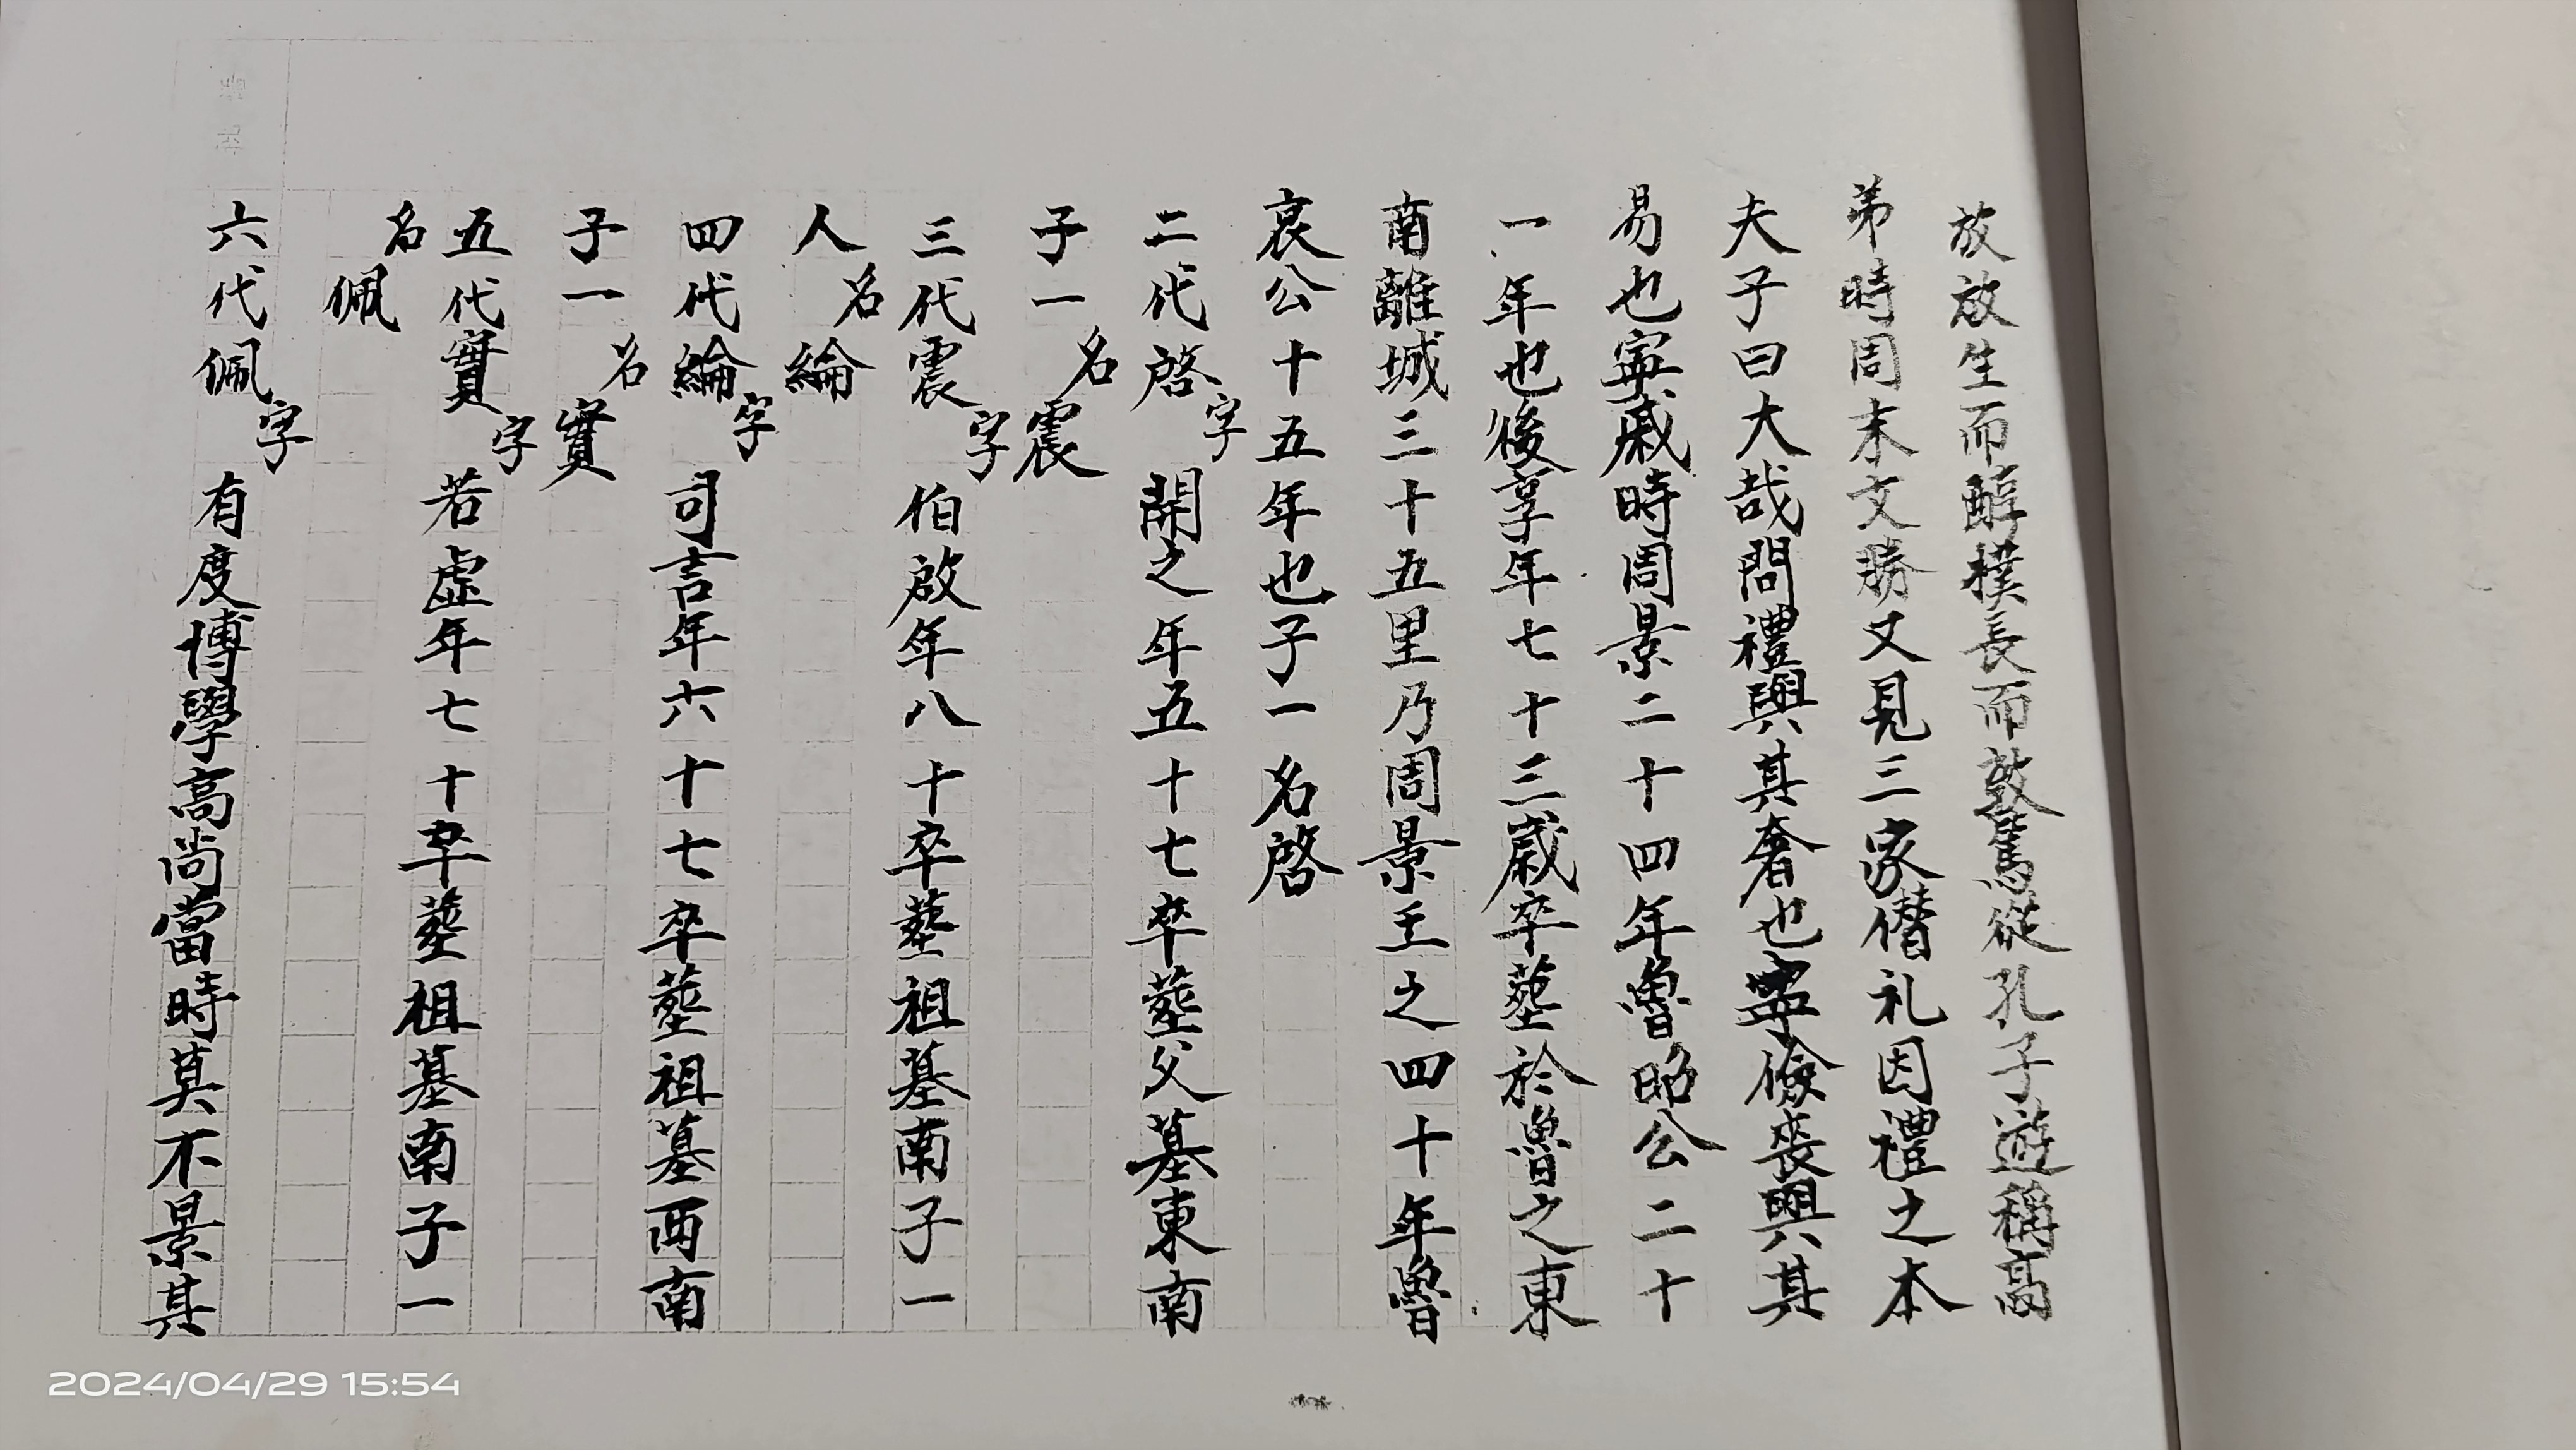 放放生而醇樸長而敦篤從孔子遊稱高
弟時周末文勝又見三家僭礼因禮之本
夫子曰大哉問禮與其奢也寧儉喪與其
易也寧戚時周景二十四年魯昭公二十
一年也後享年七十三歲卒塟於魯之東
南離城三十五里乃周景王之四十年魯
哀公十五年也子一名啓
二代啓字開之年五十七卒塟父墓東南
子一名震
三代震字伯啟年八十卒塟祖墓南子一
人名綸
四代綸字司言年六十七卒塟祖墓西南
子一名實
五代實字若虛年七十卒塟祖墓南子一
名佩
六代佩字有度博學高尚當時莫不景其
2024/04/29 15:54